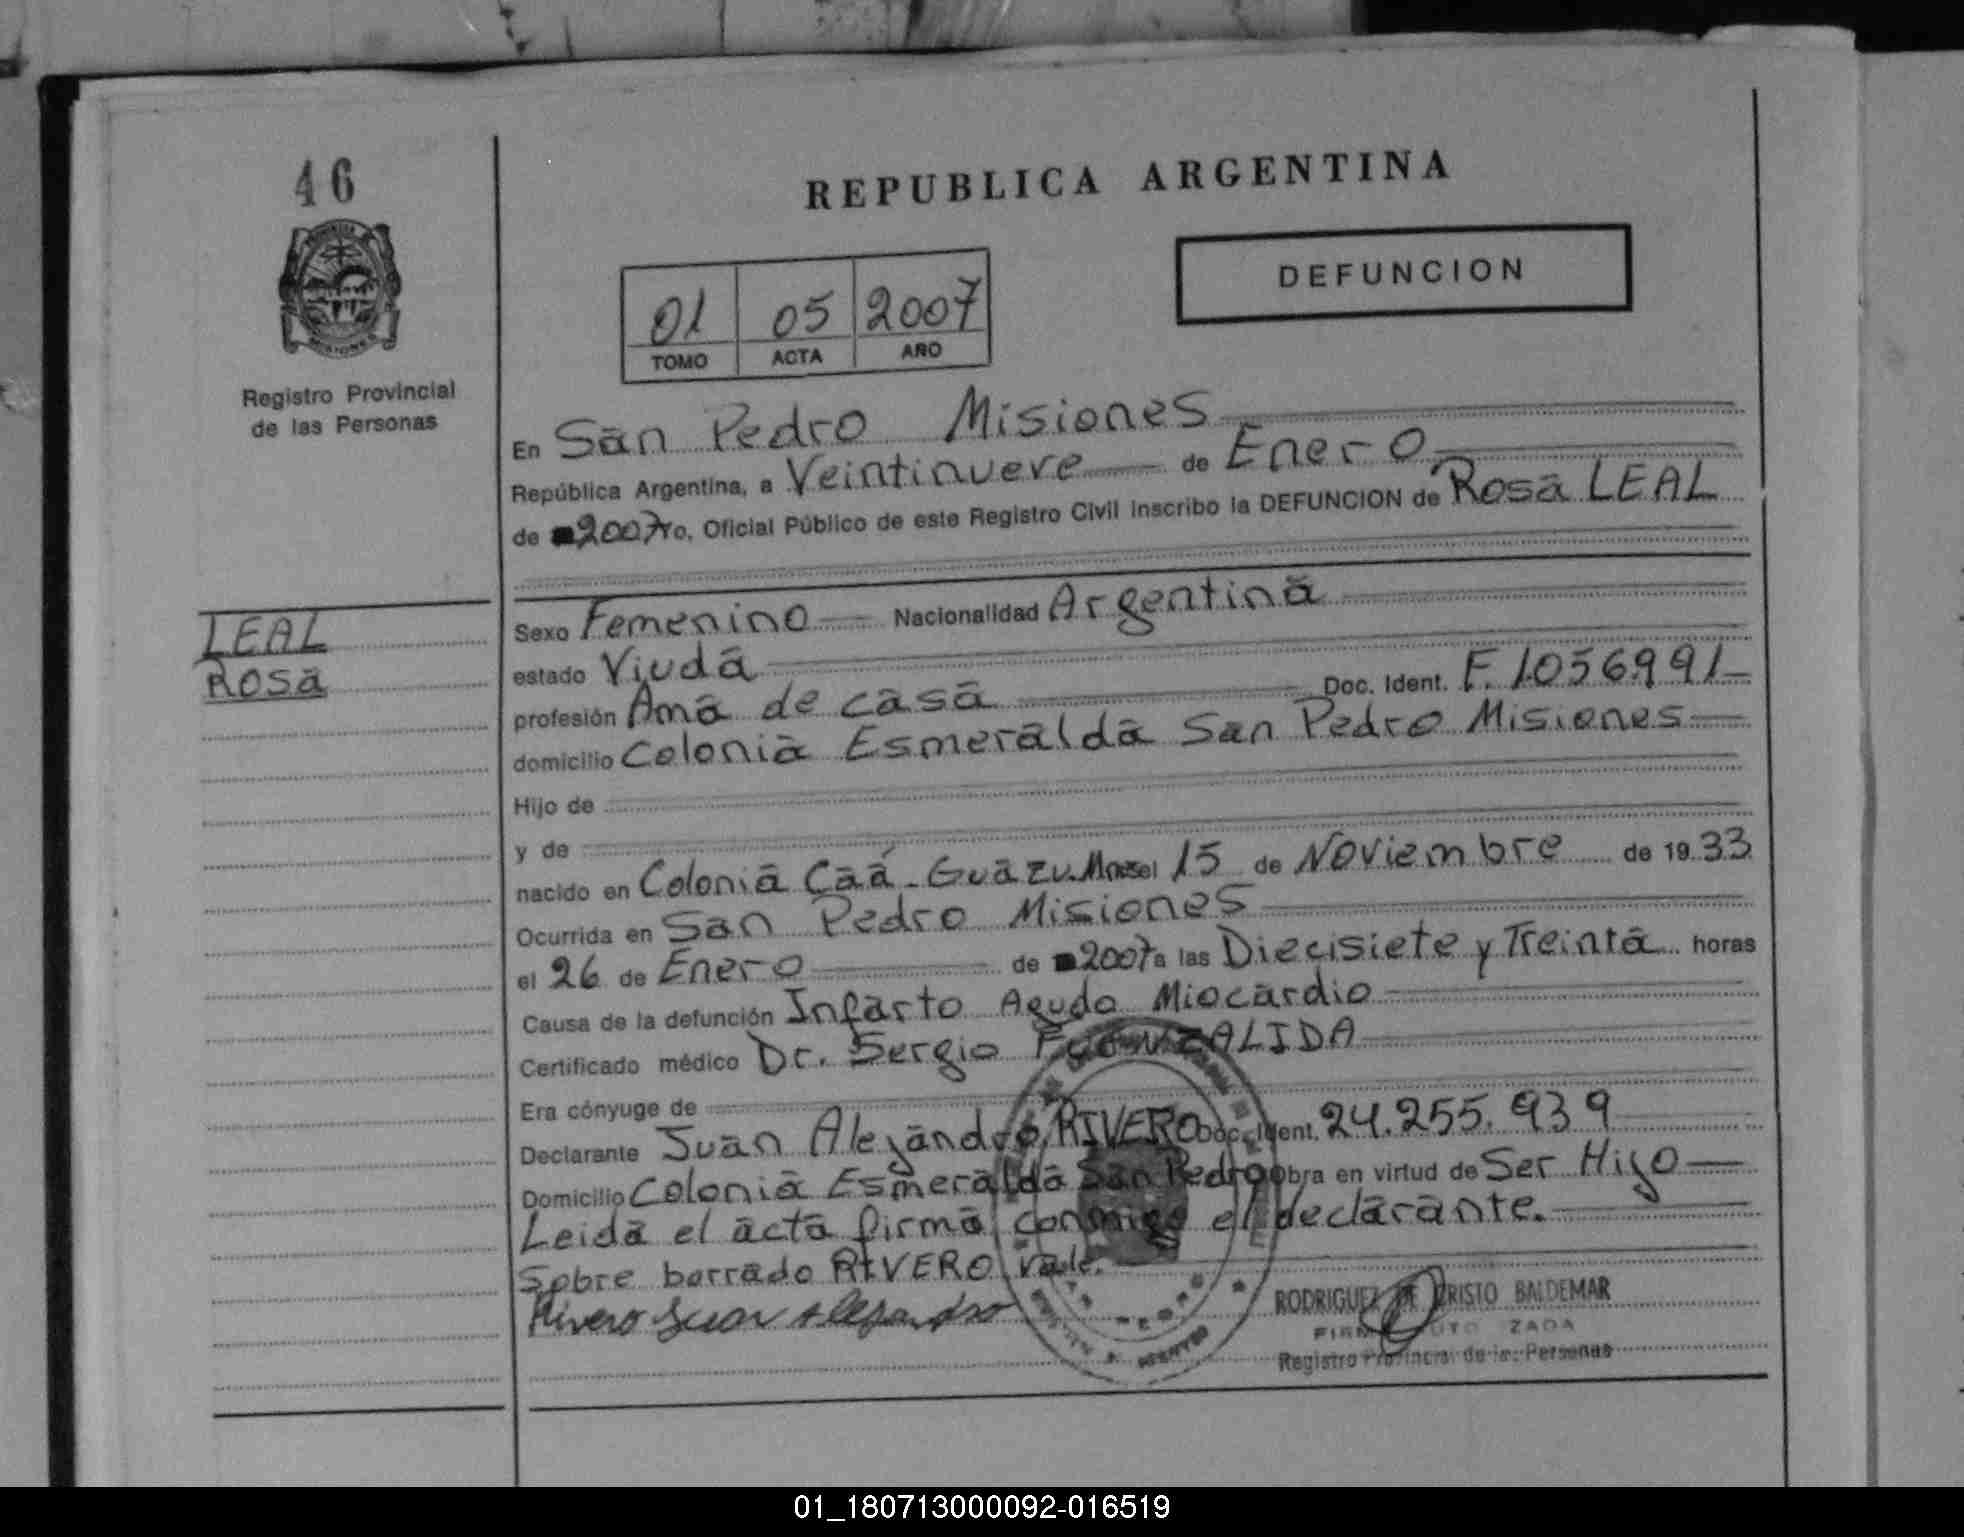 46
REPUBLICA ARGENTINA
DEFUNCION
01 05 2007
TOMO ACTA AÑO
Registro Provincial
de las Personas
En San Pedro Misiones
República Argentina, a Veintinueve de Enero
de 2007 ro, Oficial Público de este Registro Civil inscribo la DEFUNCION de Rosa LEAL
LEAL
Rosa
Sexo Femenino Nacionalidad Argentina
estado Viuda
profesión Ama de casa Doc. Ident. F. 1.056.991
domicilio Colonia Esmeralda San Pedro Misiones
Hijo de
y de
nacido en Colonia Caá-Guazu. Mnes el 15 de Noviembre de 1933
Ocurrida en San Pedro Misiones
el 26 de Enero de 2007 a las Diecisiete y Treinta horas
Causa de la defunción Infarto Agudo Miocardio
Certificado médico Dr. Sergio FUENZALIDA
Era cónyuge de
Declarante Juan Alejandro RIVERO Doc. Ident. 24.255.939
Domicilio Colonia Esmeralda San Pedro obra en virtud de Ser Hijo
Leida el acta firma conmigo el declarante.
Sobre borrado RIVERO, vale.
Rivero Juan Alejandro
RODRIGUEZ DE CRISTO BALDEMAR
Registro Provincial de las Personas
01_180713000092-016519